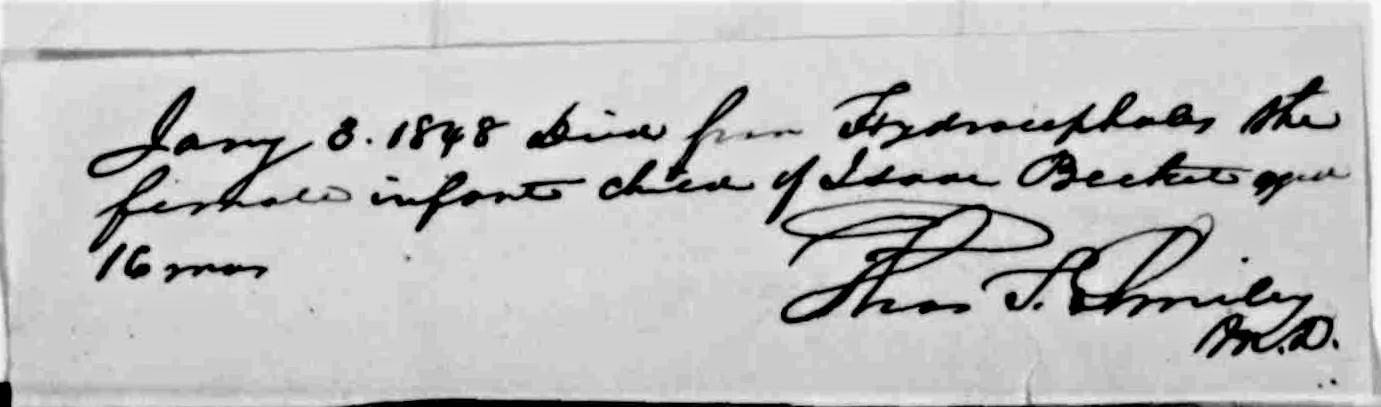 Jany 3. 1848 Died from Hydrocephalus the
female infant child of Isaac Becket aged
16 mos
Thos T. Smiley
M.D.